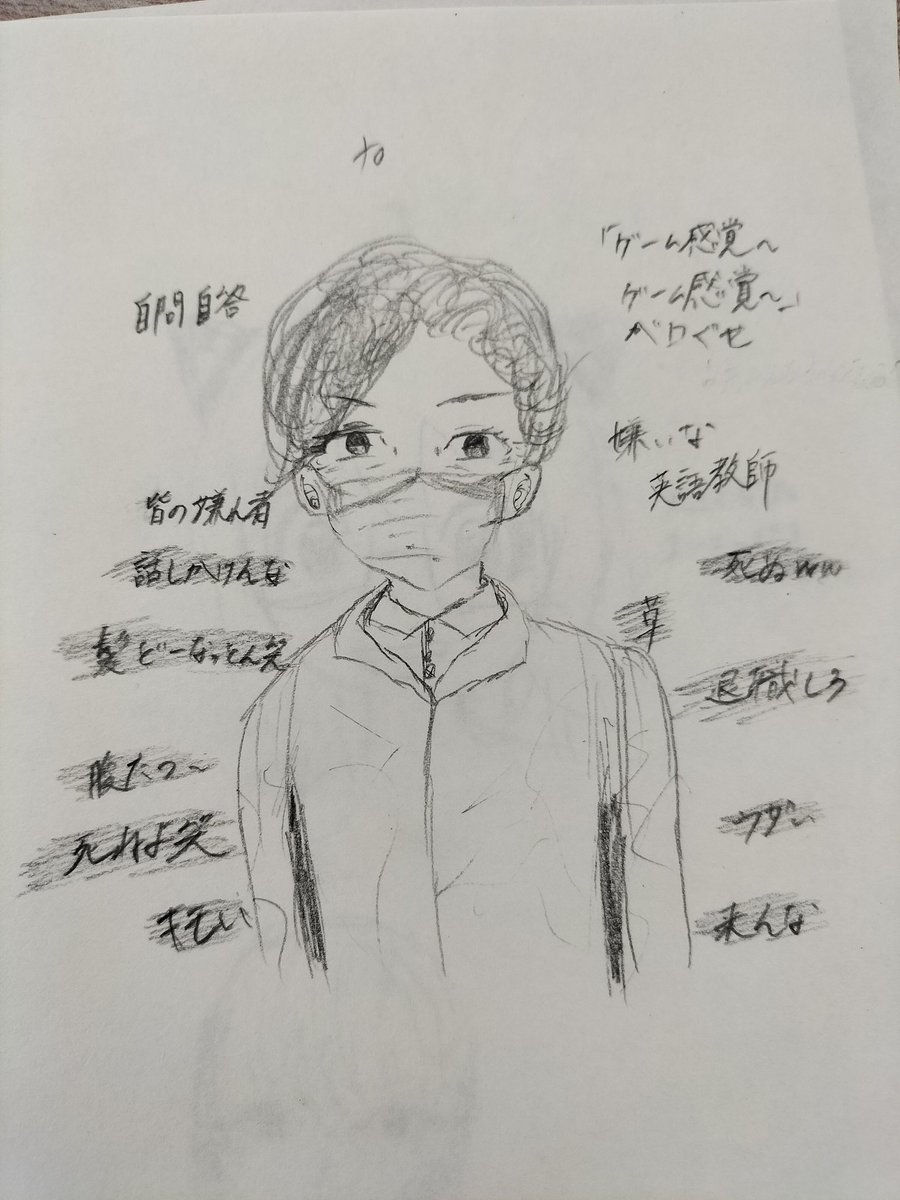 自問自答
「ゲーム感覚〜
ゲーム感覚〜」
が口ぐせ
嫌いな
英語教師
皆の嫌ん者
話しかけんな
髪どーなっとん笑
腹たつ〜
死ねよ笑
キモい
死ぬww
草
退職しろ
ウザい
来んな